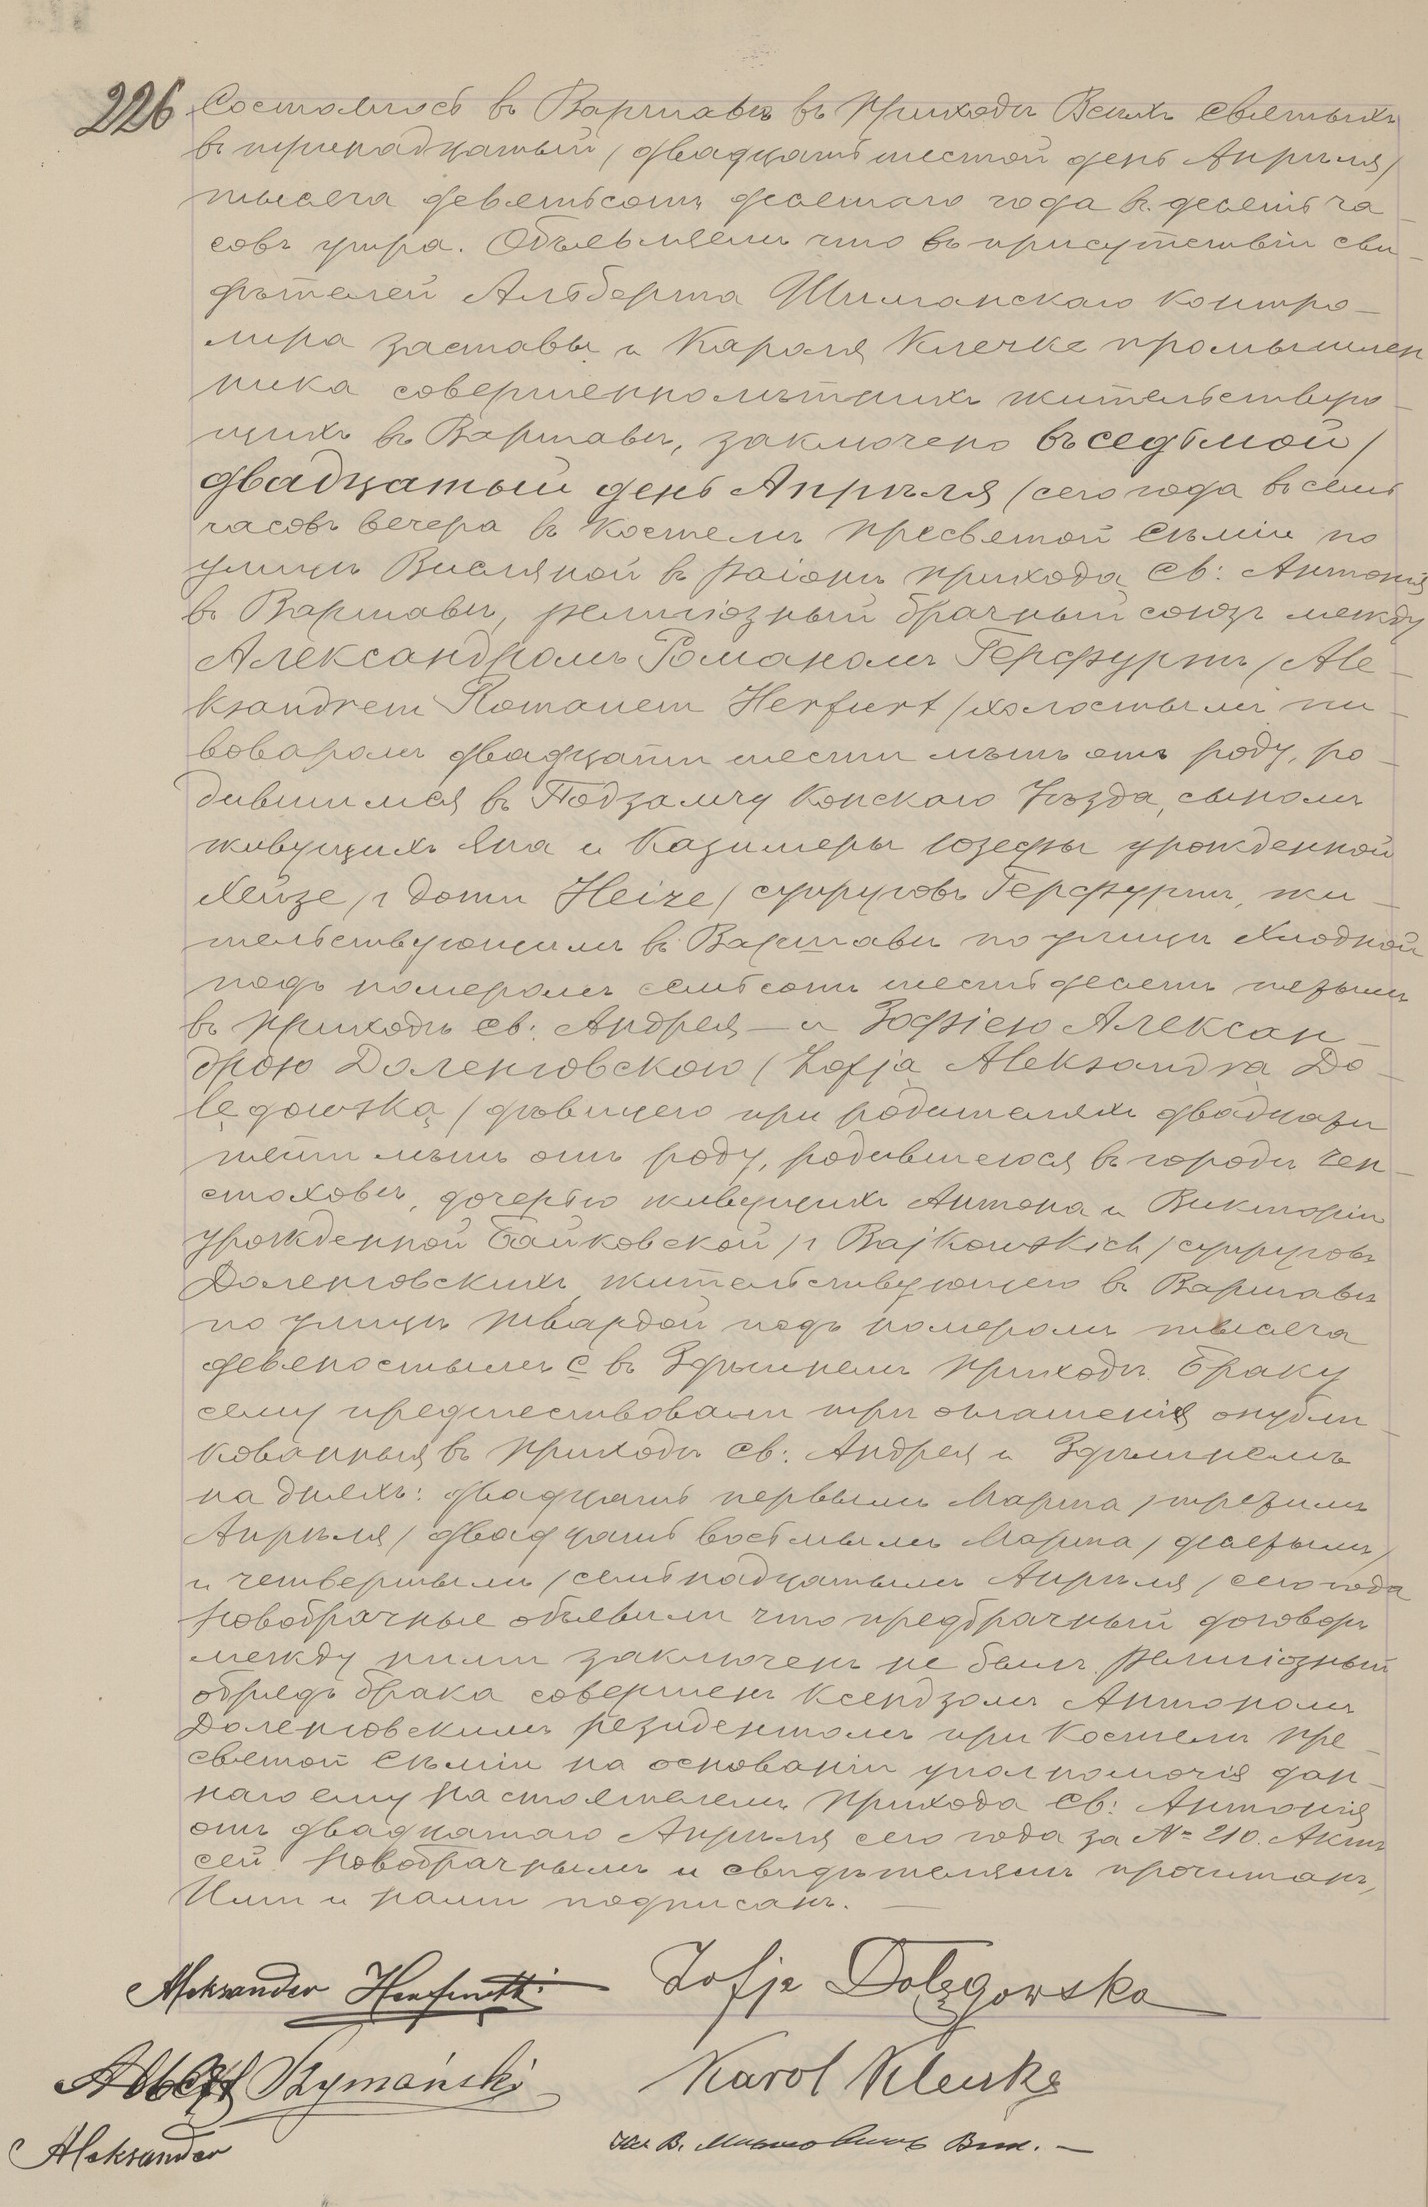 226 Состоялось въ Варшавѣ въ приходѣ Всѣхъ святыхъ
въ тринадцатый /двадцать шестой день Апрѣля/
тысяча девятьсотъ десятаго года въ десять ча-
совъ утра. Объявляемъ что въ присутствіи сви-
дѣтелей Альберта Шиманскаго контро-
лера заставы и Кароля Клечке промышлен
ника совершеннолѣтнихъ жительствую-
щихъ въ Варшавѣ, заключено въ седьмой/
двадцатый день Апрѣля /сего года въ семь
часовъ вечера въ костелѣ пресвятой Семіи по
улицѣ Висляной въ раіонѣ прихода Св: Антонія
въ Варшавѣ, религіозный брачный союзъ между
Александромъ Романомъ Герфуртъ /Ale-
ksandrem Romanem Herfurt/ холостымъ пи-
воваромъ двадцати шести лѣтъ отъ роду, ро-
дившимся въ Подзамчу Конскаго Уѣзда, сыномъ
живущихъ Яна и Казимеры Юзефы урожденной
Хейзе /z domu Heize/ супруговъ Герфуртъ, жи-
тельствующимъ въ Варшавѣ по улицѣ Хлодной
подъ номеромъ семьсотъ шестьдесятъ пятымъ
въ приходѣ св: Андрея — и Зофіею Алексан-
дрою Доленговскою /Zofją Aleksandrą Do-
lęgowską/ дѣвицею при родителяхъ двадцати
пяти лѣтъ отъ роду, родившеюся въ городѣ Чен-
стоховѣ, дочерью живущихъ Антона и Викторіи
урожденной Байковской /z Bajkowskich/ супруговъ
Доленговскихъ, жительствующею въ Варшавѣ
по улицѣ Твардой подъ номеромъ тысяча
девяностымъ с въ Здѣшнемъ приходѣ. Браку
сему предшествовали три оглашенія опубли-
кованныя въ приходѣ св: Андрея и Здѣшнемъ
на дняхъ: двадцать первымъ Марта /третьимъ
Апрѣля/ двадцать восьмымъ Марта /десятымъ/
и четвертымъ /семьнадцатымъ Апрѣля/ сего года
Новобрачные объявили что предбрачный договоръ
между ними заключенъ не былъ. Религіозный
обрядъ брака совершенъ ксендзомъ Антономъ
Доленговскимъ резидентомъ при костелѣ пре-
святой Семіи на основаніи уполномочія дан-
наго ему Настоятелемъ прихода Св: Антонія
отъ двадцатаго Апрѣля сего года за № 210. Актъ
сей Новобрачнымъ и свидѣтелямъ прочитанъ,
Ими и нами подписанъ. —
Aleksander Herfurtt Zofja Dolęgowska
Albert Szymański Karol Klecke
Aleksander